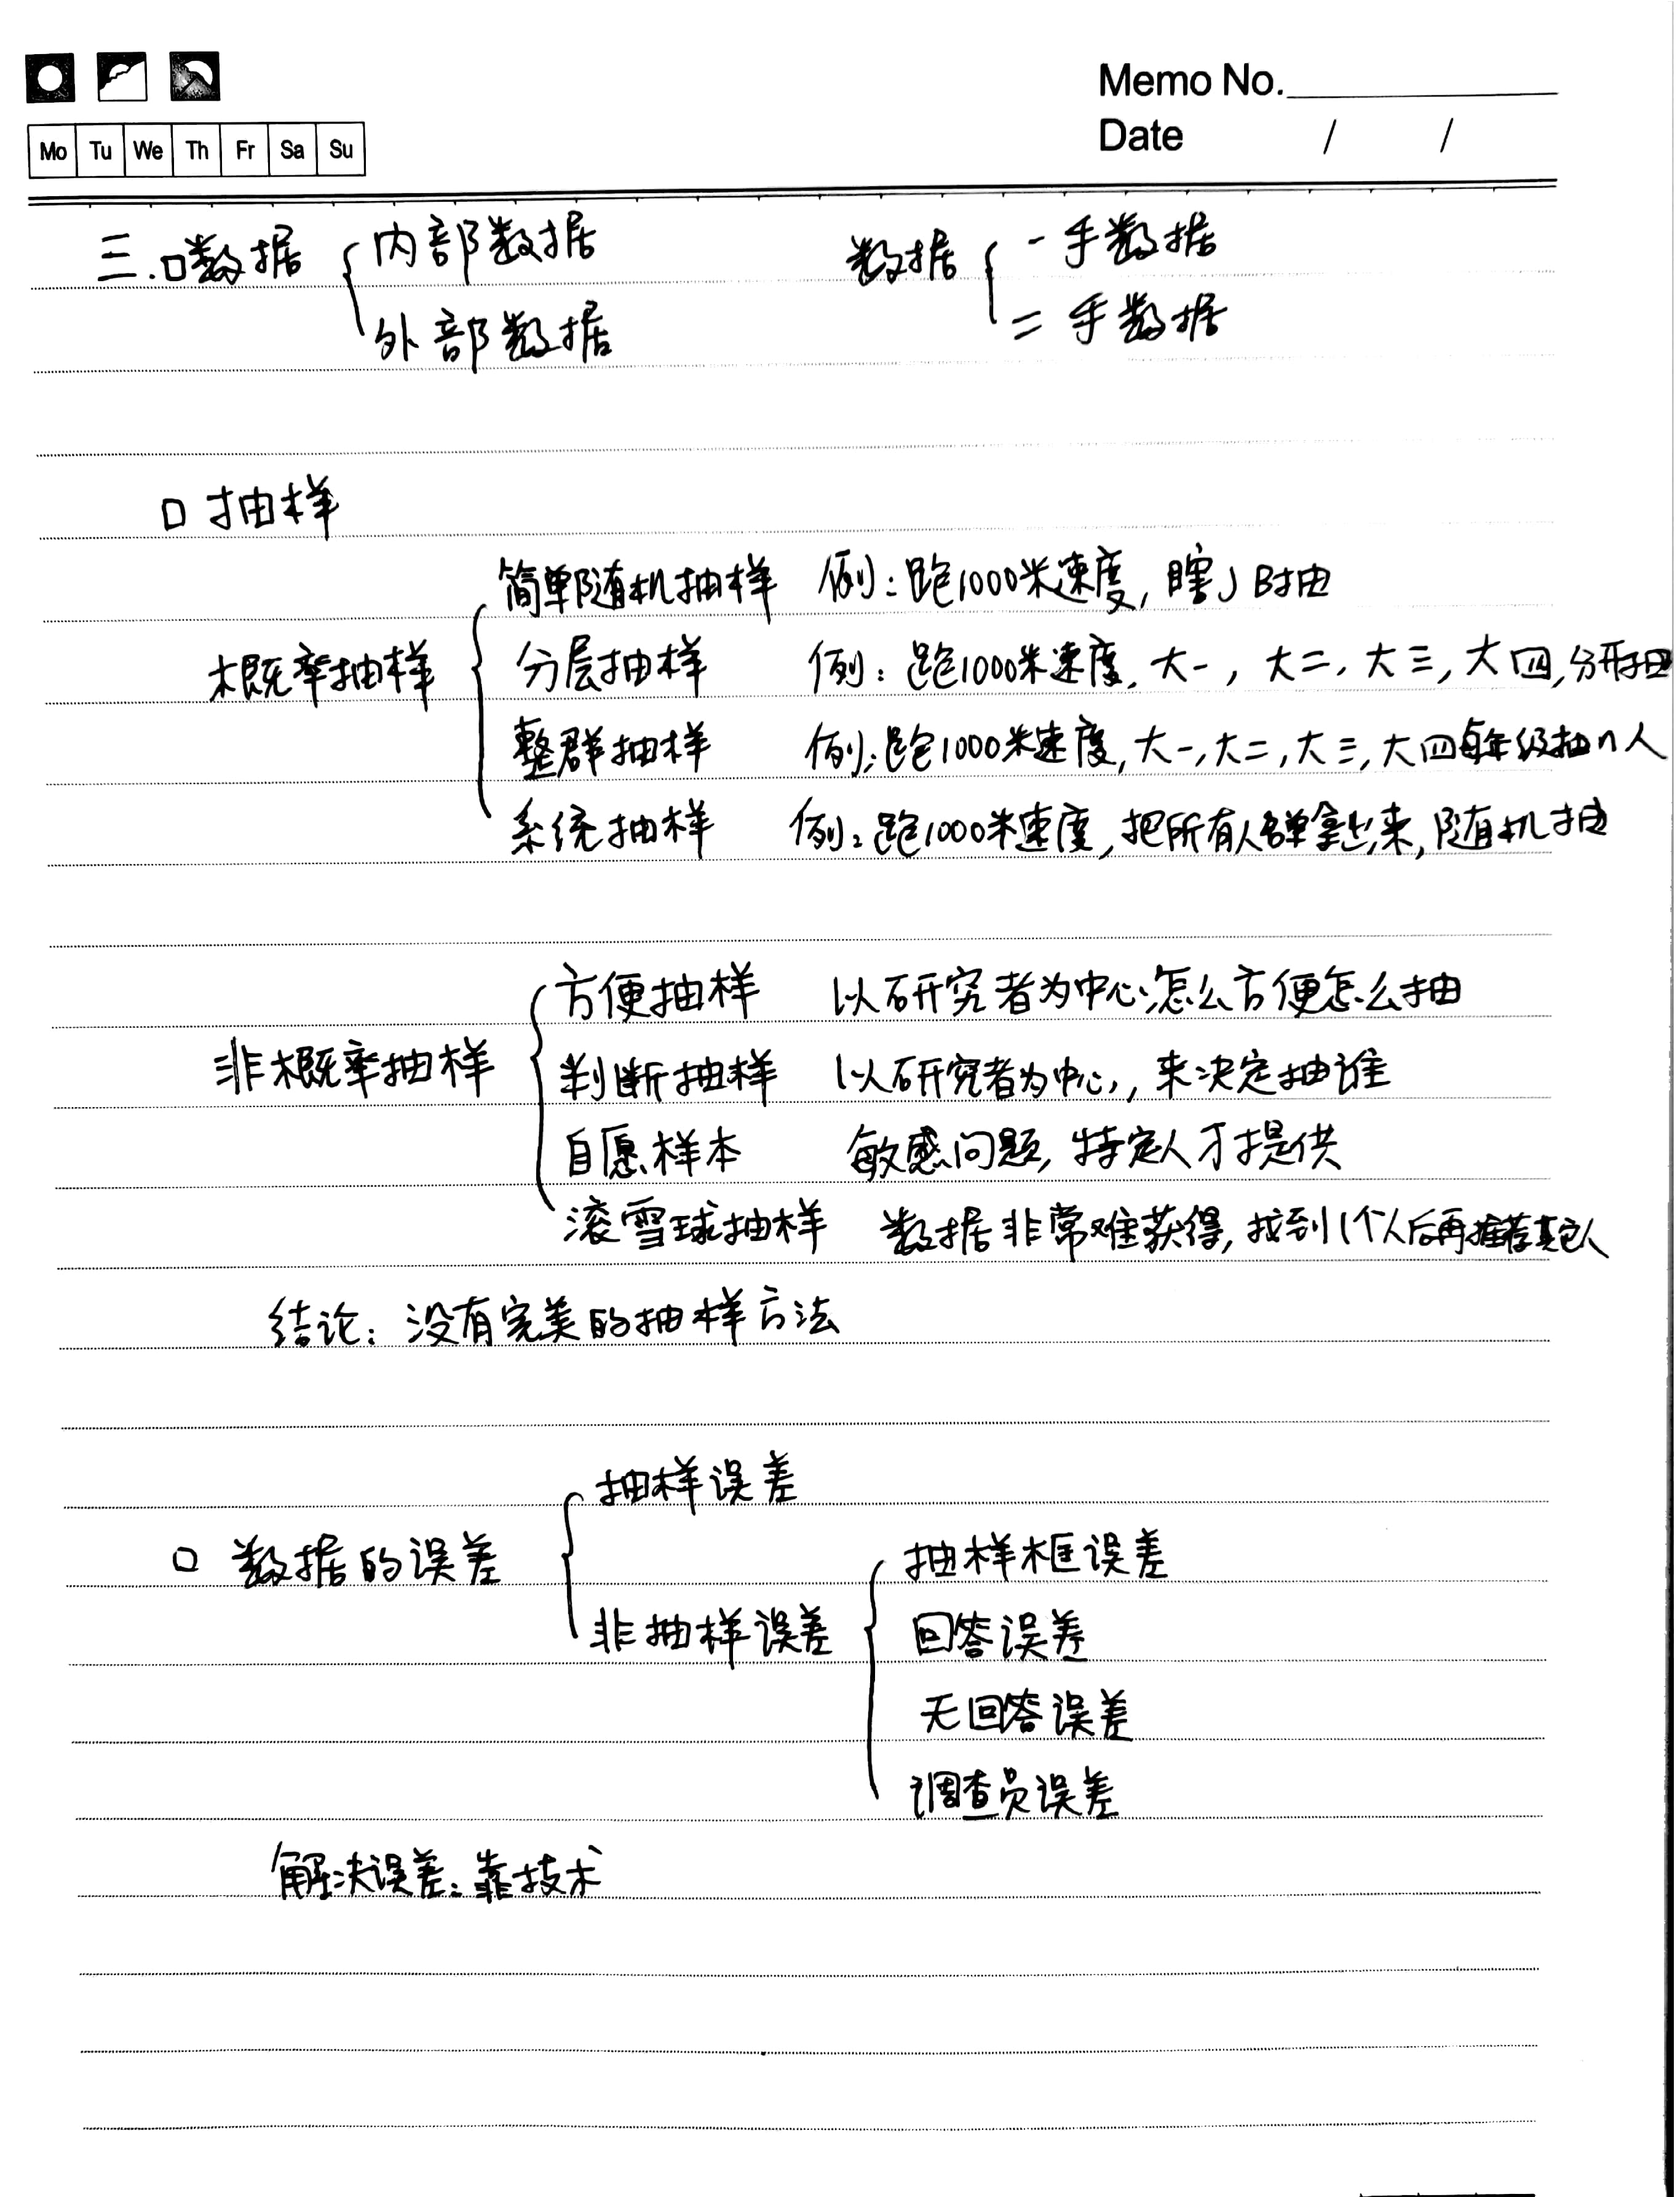 Memo No.
Mo Tu We Th Fr Sa Su
Date / /
三.口数据 内部数据 数据 一手数据
外部数据 二手数据
口 抽样
简单随机抽样 例:跑1000米速度,瞎JB抽
概率抽样 分层抽样 例:跑1000米速度,大一,大二,大三,大四,分开抽
整群抽样 例:跑1000米速度,大一,大二,大三,大四每年级抽n人
系统抽样 例:跑1000米速度,把所有人名单拿出来,随机抽
方便抽样 以研究者为中心怎么方便怎么抽
非概率抽样 判断抽样 以研究者为中心,来决定抽谁
自愿样本 敏感问题,特定人才提供
滚雪球抽样 数据非常难获得,找到1个人后再推荐其它人
结论:没有完美的抽样方法
抽样误差
口 数据的误差 抽样框误差
非抽样误差 回答误差
无回答误差
调查员误差
解决误差:靠技术